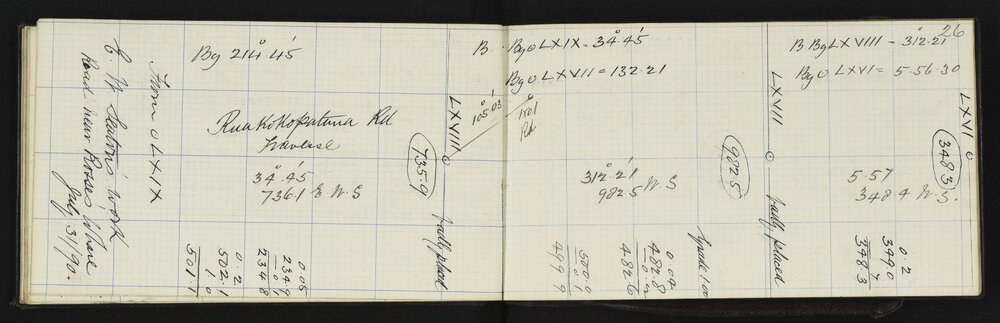 26
E. W. Seaton's work
Road near Rosse's Whare
July 31/90.
From o LXIX
Bg 214°.45'
Ruakokopatuna Rd
traverse
34°.45'
7361 E W S
0.05
234.9
0.1
234.8
0.2
502.1
1.0
501.1
LXVIII
735.9
badly placed
B. Bg o LXIX - 34°.45'
Bg o LXVII = 132.21
105°.03'
Rd
312°.21'
9825 W.S
982.5
0.04
482.8
0.2
482.6
500.0
0.1
499.9
LXVIII
badly placed
B Bg LXVIII - 312°.21'
Bg o LXVI = 5.56.30
5.57
3484 W.S.
0.2
349.0
348.3
LXVI
348.3